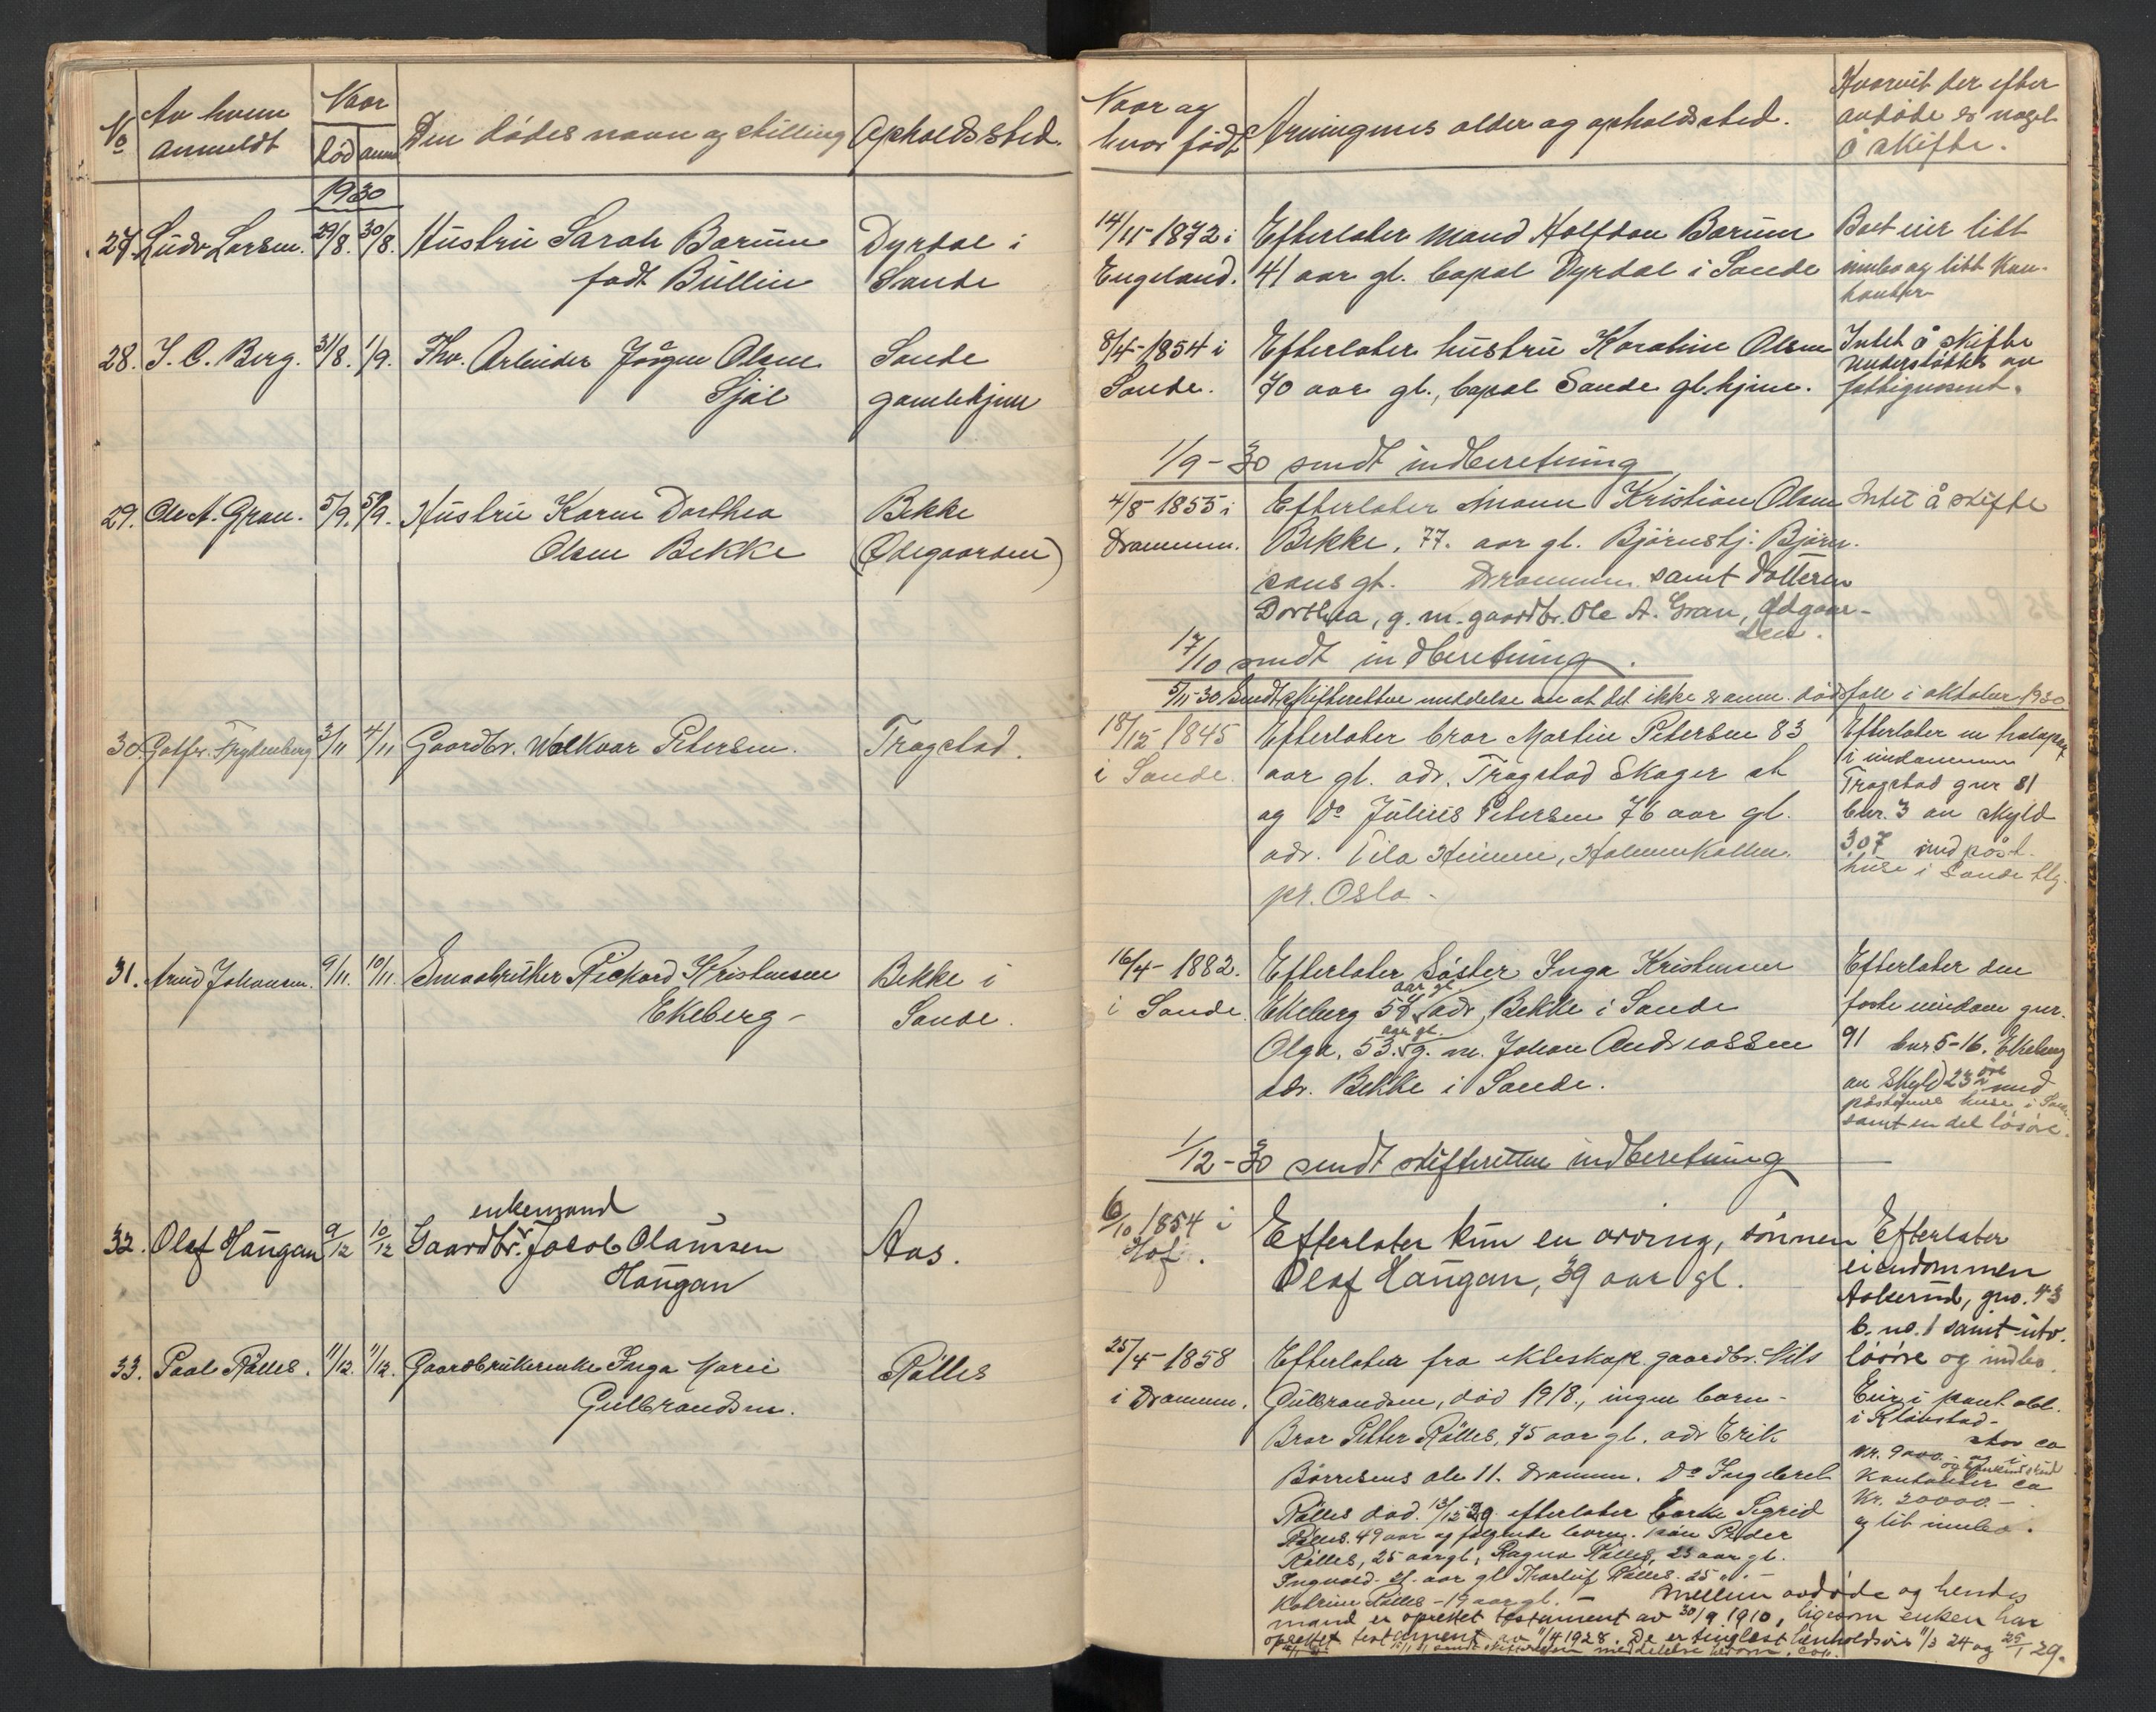 No
Av hvem
anmeldt
Naar
død
anm
Den dødes navn og stilling
Opholdssted.
1930
27. Ludv Larsen. 29/8. 30/8. Hustru Sarah Barum
født Bullin
Dyrdal i
Sande
28. J. C. Berg. 31/8. 1/9. Fhv. Arbeider Jörgen Olsen
Sjöl
Sande
gamlehjem
29. Ole A. Gran. 5/9. 5/9. Hustru Karen Dorthea
Olsen Bekke
Bekke
(Ødegaarden)
30. Gotfr. 3/11 4/11 Gaardbr. Walkvar Petersen.
Tragstad.
31. Arvid Johansen. 9/11. 10/11. Smaabruker Rickard Kristensen
Ekeberg -
Bekke i
Sande.
enkemand
32. Olaf Haugan 9/12 10/12 Gaardbr. Jacob Olaussen
Haugan
Aas.
33. Paal Rålles. 11/12. 11/12. Gaardbrukerenke Inga Marie
Gulbrandsen.
Rålles
Naar og
hvor født
Arvingenes alder og opholdssted.
Hvorvit der efter
avdøde er noget
å skifte.
14/11-1872 i
Engeland.
Efterlater mand Halfdan Barum
41 aar gl. bopæl Dyrdal i Sande
Boet eier litt
innbo og litt kon-
tanter
8/4-1854 i
Sande.
Efterlater hustru Karoline Olsen
70 aar gl., bopæl Sande gl.hjem.
Intet å skifte
understøttet av
fattigvesent.
1/9-30 sendt indberetning
4/8-1855 i
Drammen.
Efterlater Mann Kristian Olsen
Bekke, 77. aar gl. Björnstj. Björn-
sons gt. Drammen samt datteren
Dorthea, g. m. gaardbr. Ole A. Gran, Ødgaar-
den.
Intet å skifte
17/10 sendt indberetning.
5/11-30 Sendt skifteretten meddelelse om at det ikke er anm. dødsfall i oktober 1930
18/12 1845
i Sande.
Efterlater bror Martin Petersen 83
aar gl. adr. Tragstad Skoger st
og do Julius Petersen 76 aar gl.
adr. Lila Heimen, Holmenkollen.
pr. Oslo -
Efterlater en halvpart
i eiendommen
Tragstad gnr 81
bnr. 3 av skyld
3.07 med påst.
huse i Sande
16/4-1882.
i Sande.
Efterlater Søster Inga Kristensen
aar gl.
Ekeberg 54 adr. Bekke i Sande
aar gl.
Olga, 53. g. m. Johan Andreassen
adr. Bekke i Sande.
Efterlater den
faste eiendom gnr.
91 bnr 5-16. Ekeberg
av Skyld 23 øre med
påstående huse i Sande
samt en del løsøre.
1/12-30 sendt skifteretten indberetning
6/10 1854 i
Hof.
Efterlater kun en arving, sønnen
Olaf Haugan, 39 aar gl.
Efterlater
eiendommen
Askerud, gno. 43
b. no. 1 samt utv.
løsøre og indbo.
25/4-1858
i Drammen.
Efterlater fra ekteskap. gaardbr. Nils
Gulbrandsen, død 1918., ingen barn -
Bror Petter Rålles, 75 aar gl. adr Erik
Börresens ale 11. Drammen. Do Ingebret
Rålles død. 13/12-29 efterlater Enke Sigrid
Rålles. 49 aar og følgende barn. sön Peder
Rålles, 25 aar gl., Ragna Rålles, 23 aar gl.
Ingvald- 21. aar gl Thorleif Rålles. 25 " . -
Katrine Rålles - 19 aar gl. - Mellem avdøde og hendes
mand er oprettet testament av 30/9 1910, ligesom enken har
oprettet testament av 11/4 1928. De er tinglæst henholdsvis 11/3 24 og 25/1 29.
sendt skifteretten meddelelse herom.
Eier i pant obl.
i Kläbstad-
stor ca
kr. 9000. og i
kontanter ca
kr. 20000.-
og lit innbo.